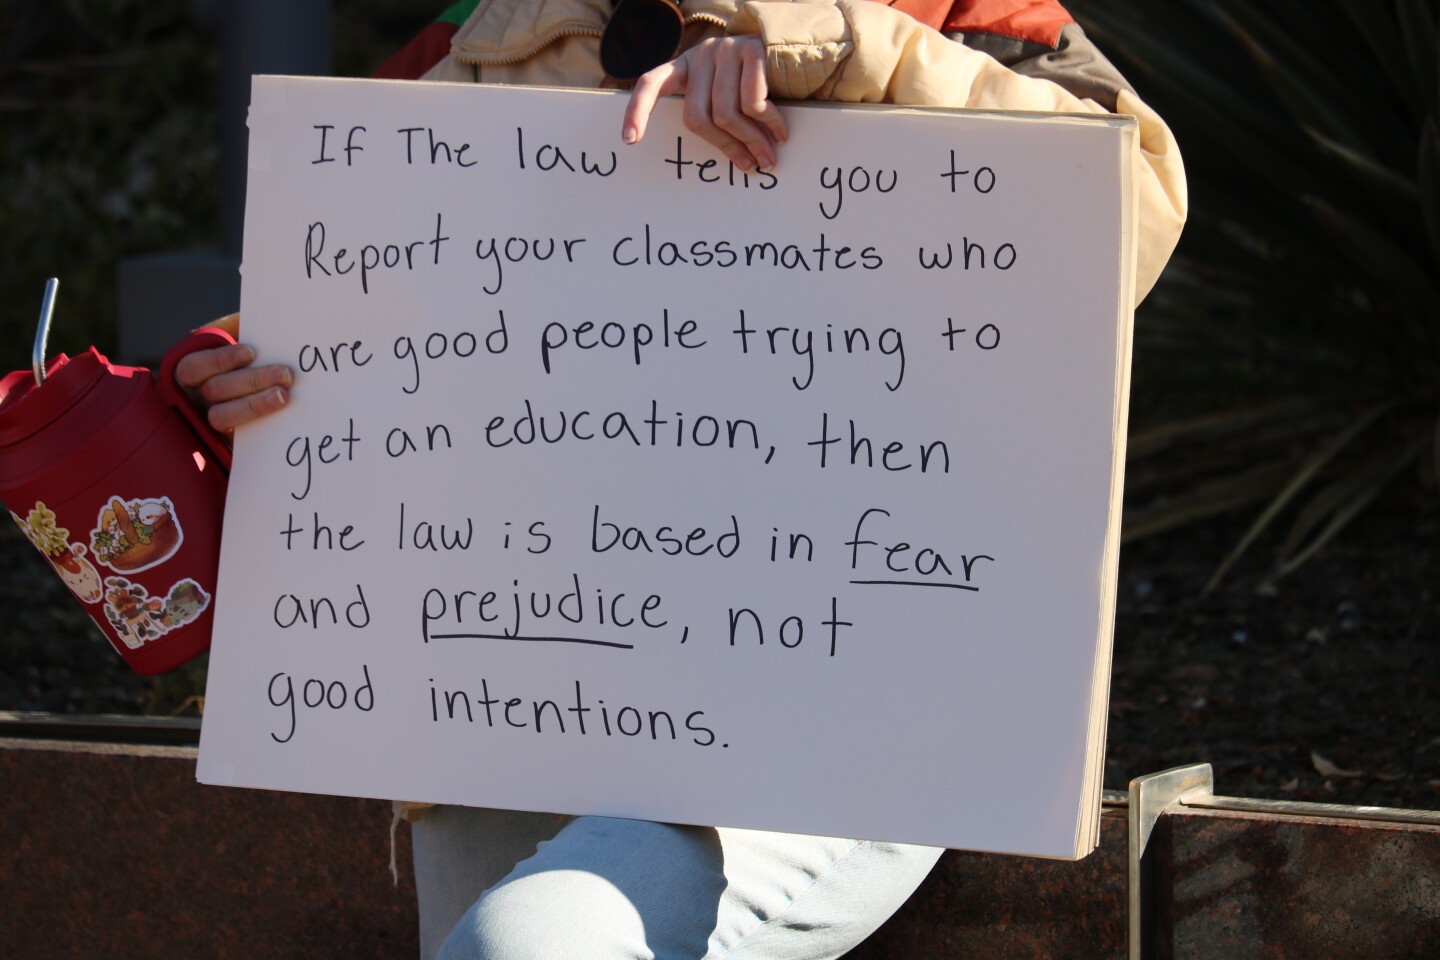 If The law tells you to
Report your classmates who
are good people trying to
get an education, then
the law is based in fear
and prejudice, not
good intentions.